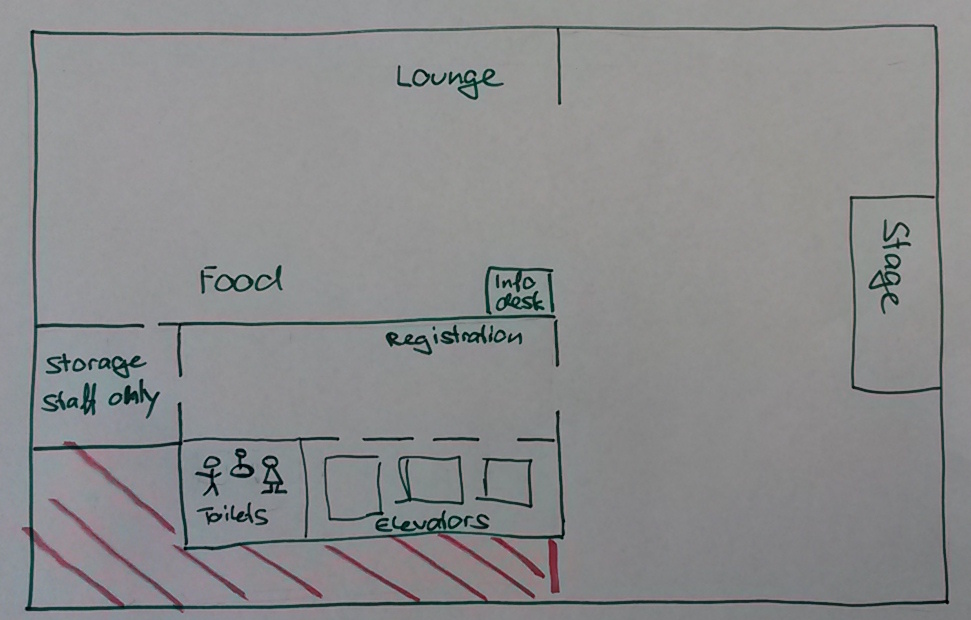 Lounge
Stage
Food
Info
desk
Registration
Storage
staff only
Toilets
Elevators